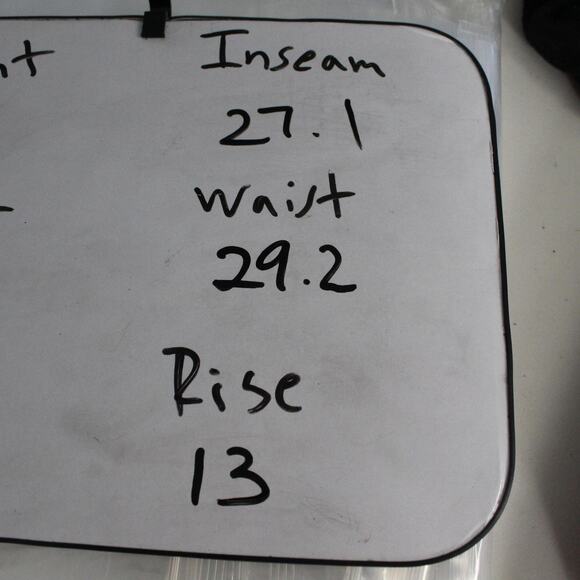 Inseam
27.1
Waist
29.2
Rise
13